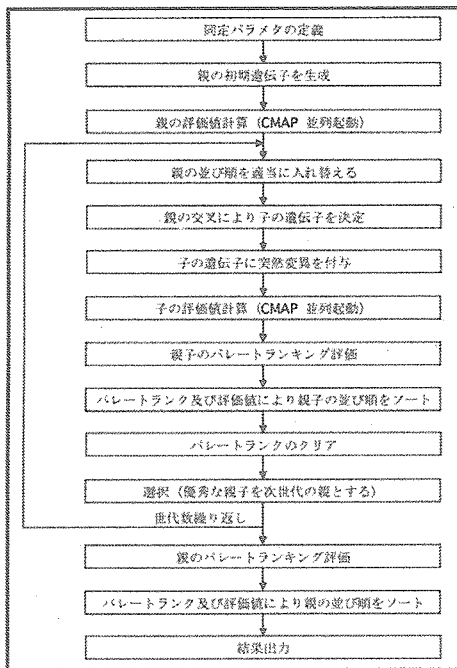 同定パラメタの定義
親の初期遺伝子を生成
親の評価値計算（CMAP 並列起動）
親の並び順を適当に入れ替える
親の交叉により子の遺伝子を決定
子の遺伝子に突然変異を付与
子の評価値計算（CMAP 並列起動）
親子のパレートランキング評価
パレートランク及び評価値により親子の並び順をソート
パレートランクのクリア
選択（優秀な親子を次世代の親とする）
世代数繰り返し
親のパレートランキング評価
パレートランク及び評価値により親の並び順をソート
結果出力